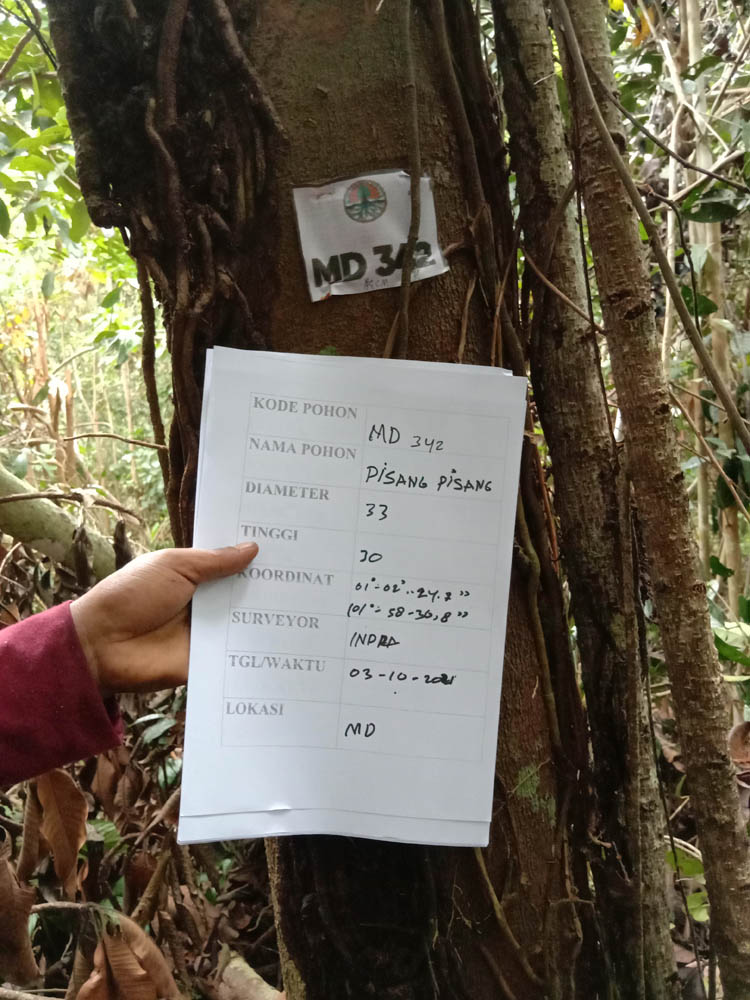 MD 342
KODE POHON
MD 342
NAMA POHON
PISANG PISANG
DIAMETER
33
TINGGI
30
KOORDINAT
01°-02°-24.3"
101°-58-36,8"
SURVEYOR
INDRA
TGL/WAKTU
03-10-2021
LOKASI
MD